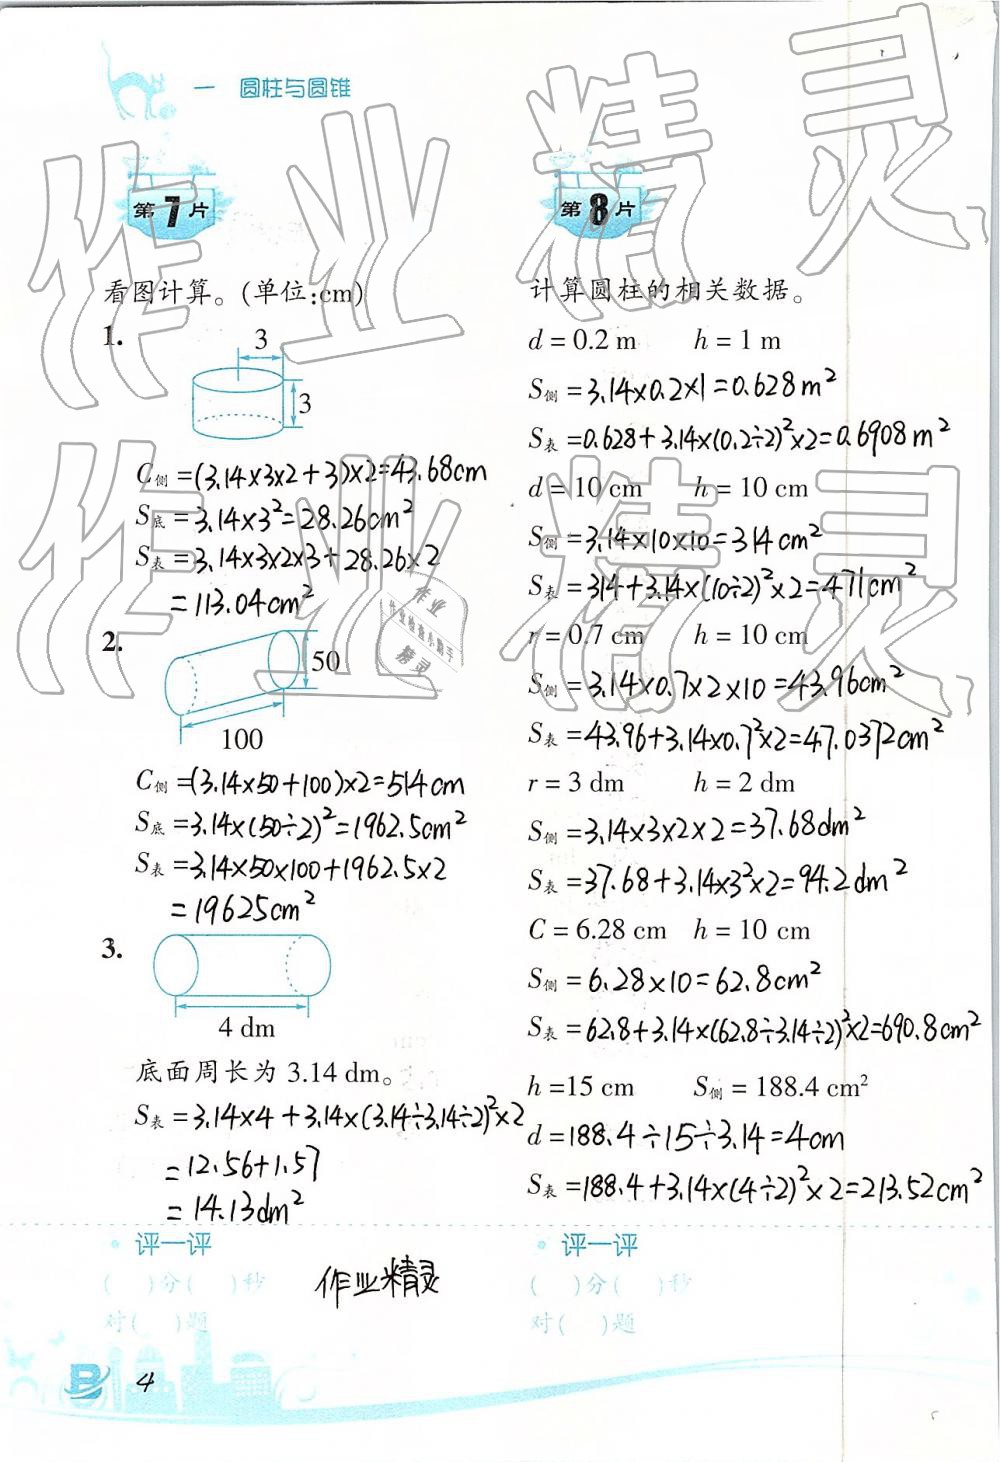 一 圆柱与圆锥
第7片
看图计算。(单位:cm)
1.
3
3
C侧=(3.14×3×2+3)×2=43.68cm
S底=3.14×3²=28.26cm²
S表=3.14×3×2×3+28.26×2
=113.04cm²
2.
50
100
C侧=(3.14×50+100)×2=514cm
S底=3.14×(50÷2)²=1962.5cm²
S表=3.14×50×100+1962.5×2
=19625cm²
3.
4 dm
底面周长为 3.14 dm。
S表=3.14×4+3.14×(3.14÷3.14÷2)²×2
=12.56+1.57
=14.13dm²
评一评
( )分( )秒
对( )题
作业精灵
4
第8片
计算圆柱的相关数据。
d = 0.2 m h = 1 m
S侧=3.14×0.2×1=0.628m²
S表=0.628+3.14×(0.2÷2)²×2=0.6908m²
d = 10 cm h = 10 cm
S侧=3.14×10×10=314cm²
S表=314+3.14×(10÷2)²×2=471cm²
r = 0.7 cm h = 10 cm
S侧=3.14×0.7×2×10=43.96cm²
S表=43.96+3.14×0.7²×2=47.0372cm²
r = 3 dm h = 2 dm
S侧=3.14×3×2×2=37.68dm²
S表=37.68+3.14×3²×2=94.2dm²
C = 6.28 cm h = 10 cm
S侧=6.28×10=62.8cm²
S表=62.8+3.14×(62.8÷3.14÷2)²×2=690.8cm²
h =15 cm S侧 = 188.4 cm²
d=188.4÷15÷3.14=4cm
S表=188.4+3.14×(4÷2)²×2=213.52cm²
评一评
( )分( )秒
对( )题
作业精灵
作业精灵